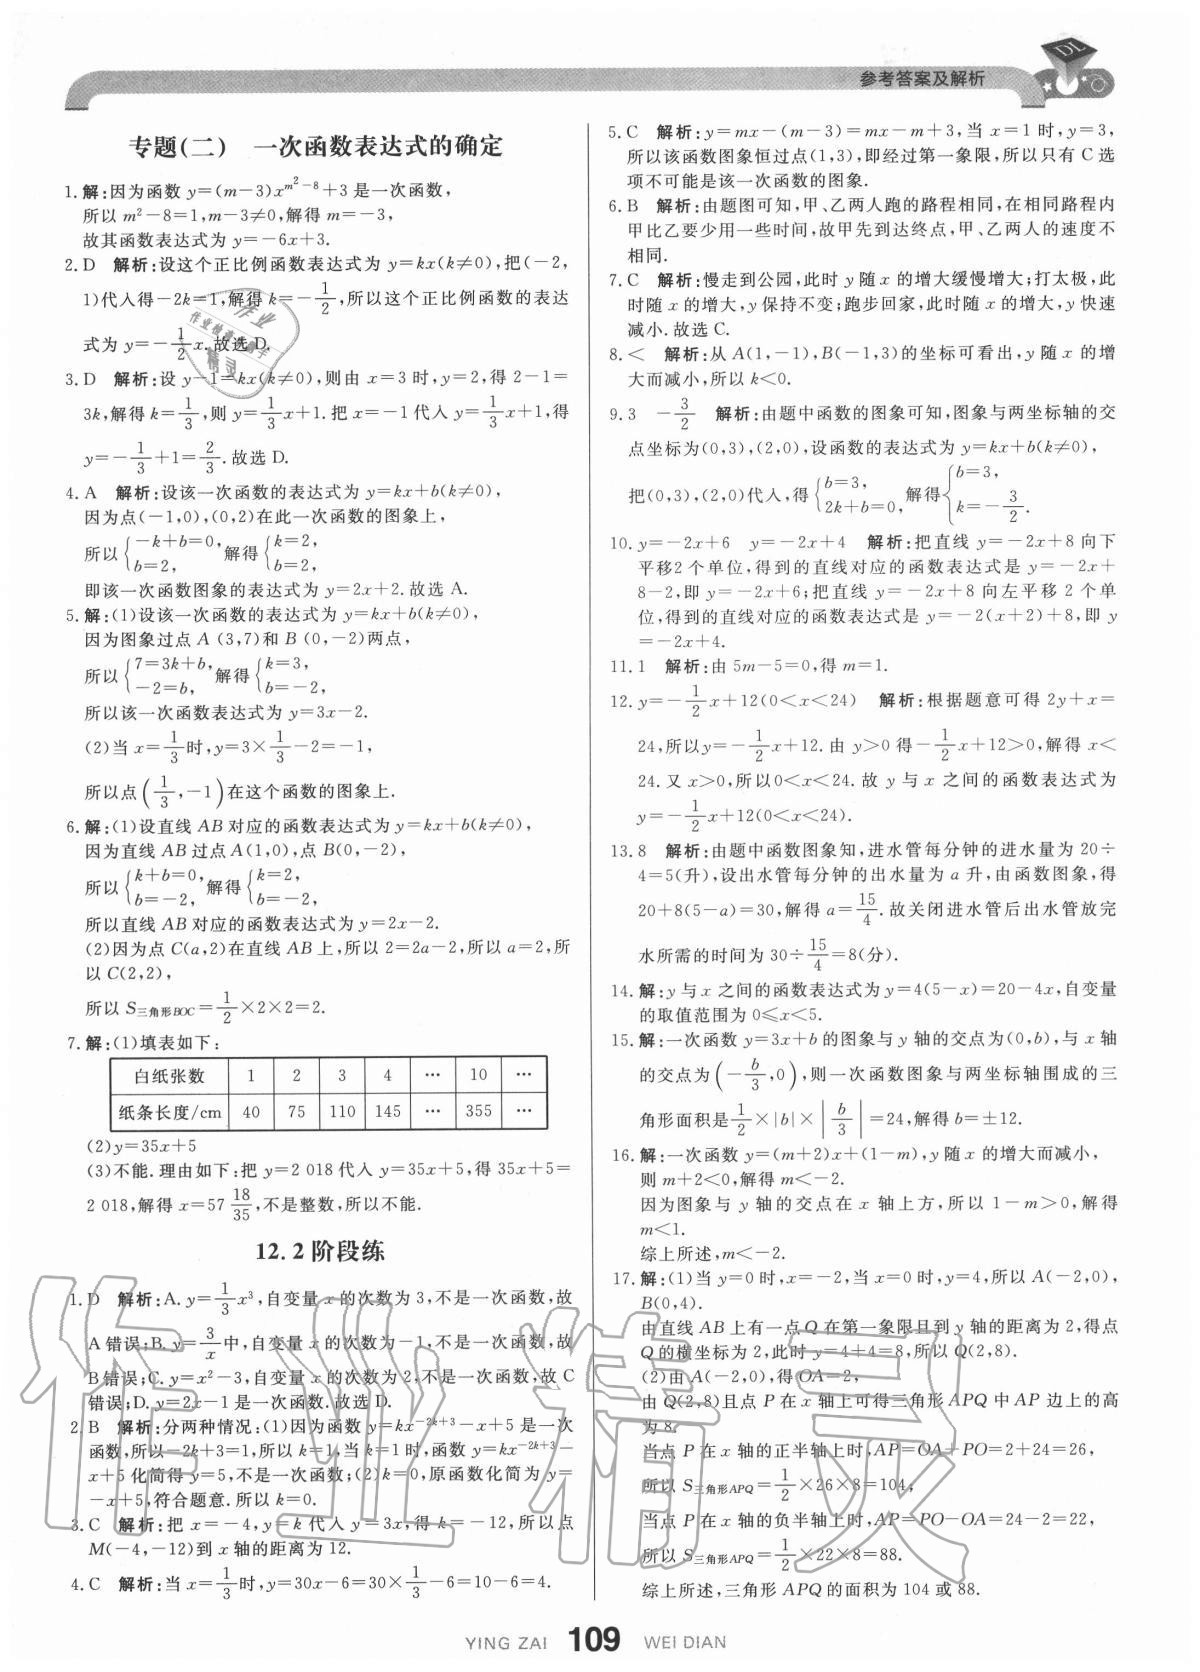 参考答案及解析
DL
专题(二) 一次函数表达式的确定
1.解:因为函数 y=(m-3)x^{m²-8}+3 是一次函数,
所以 m²-8=1,m-3≠0,解得 m=-3,
故其函数表达式为 y=-6x+3.
2.D 解析:设这个正比例函数表达式为 y=kx(k≠0),把(-2,
1)代入得-2k=1,解得 k=-1/2,所以这个正比例函数的表达
式为 y=-1/2x.故选 D.
3.D 解析:设 y-1=kx(k≠0),则由 x=3 时,y=2,得 2-1=
3k,解得 k=1/3,则 y=1/3x+1.把 x=-1 代入 y=1/3x+1,得
y=-1/3+1=2/3.故选 D.
4.A 解析:设该一次函数的表达式为 y=kx+b(k≠0),
因为点(-1,0),(0,2)在此一次函数的图象上,
所以{-k+b=0, b=2, 解得{k=2, b=2,
即该一次函数图象的表达式为 y=2x+2.故选 A.
5.解:(1)设该一次函数的表达式为 y=kx+b(k≠0),
因为图象过点 A (3,7)和 B (0,-2)两点,
所以{7=3k+b, -2=b, 解得{k=3, b=-2,
所以该一次函数表达式为 y=3x-2.
(2)当 x=1/3时,y=3×1/3-2=-1,
所以点(1/3,-1)在这个函数的图象上.
6.解:(1)设直线 AB 对应的函数表达式为 y=kx+b(k≠0),
因为直线 AB 过点 A(1,0),点 B(0,-2),
所以{k+b=0, b=-2, 解得{k=2, b=-2,
所以直线 AB 对应的函数表达式为 y=2x-2.
(2)因为点 C(a,2)在直线 AB 上,所以 2=2a-2,所以 a=2,所
以 C(2,2),
所以 S三角形BOC=1/2×2×2=2.
7.解:(1)填表如下:
白纸张数 1 2 3 4 … 10 …
纸条长度/cm 40 75 110 145 … 355 …
(2)y=35x+5
(3)不能.理由如下:把 y=2 018 代入 y=35x+5,得 35x+5=
2 018,解得 x=57 18/35,不是整数,所以不能.
12.2 阶段练
1.D 解析:A.y=1/3x³,自变量 x 的次数为 3,不是一次函数,故
A 错误;B.y=3/x中,自变量 x 的次数为-1,不是一次函数,故
B 错误;C.y=x²-3,自变量 x 的次数为 2,不是一次函数,故 C
错误;D.y=2x-1 是一次函数.故选 D.
2.B 解析:分两种情况:(1)因为函数 y=kx^{-2k+3}-x+5 是一次
函数,所以-2k+3=1,所以 k=1,当 k=1 时,函数 y=kx^{-2k+3}-
x+5 化简得 y=5,不是一次函数;(2)k=0,原函数化简为 y=
-x+5,符合题意.所以 k=0.
3.C 解析:把 x=-4,y=k 代入 y=3x,得 k=-12,所以点
M(-4,-12)到 x 轴的距离为 12.
4.C 解析:当 x=1/3时,y=30x-6=30×1/3-6=10-6=4.
5.C 解析:y=mx-(m-3)=mx-m+3,当 x=1 时,y=3,
所以该函数图象恒过点(1,3),即经过第一象限,所以只有 C 选
项不可能是该一次函数的图象.
6.B 解析:由题图可知,甲、乙两人跑的路程相同,在相同路程内
甲比乙要少用一些时间,故甲先到达终点,甲、乙两人的速度不
相同.
7.C 解析:慢走到公园,此时 y 随 x 的增大缓慢增大;打太极,此
时随 x 的增大,y 保持不变;跑步回家,此时随 x 的增大,y 快速
减小.故选 C.
8.< 解析:从 A(1,-1),B(-1,3)的坐标可看出,y 随 x 的增
大而减小,所以 k<0.
9.3 -3/2 解析:由题中函数的图象可知,图象与两坐标轴的交
点坐标为(0,3),(2,0),设函数的表达式为 y=kx+b(k≠0),
把(0,3),(2,0)代入,得{b=3, 2k+b=0, 解得{b=3, k=-3/2.
10.y=-2x+6 y=-2x+4 解析:把直线 y=-2x+8 向下
平移2 个单位,得到的直线对应的函数表达式是 y=-2x+
8-2,即 y=-2x+6;把直线 y=-2x+8 向左平移 2 个单
位,得到的直线对应的函数表达式是 y=-2(x+2)+8,即 y
=-2x+4.
11.1 解析:由 5m-5=0,得 m=1.
12.y=-1/2x+12(0<x<24) 解析:根据题意可得 2y+x=
24,所以y=-1/2x+12.由 y>0 得-1/2x+12>0,解得 x<
24.又 x>0,所以0<x<24.故 y 与 x 之间的函数表达式为
y=-1/2x+12(0<x<24).
13.8 解析:由题中函数图象知,进水管每分钟的进水量为 20÷
4=5(升),设出水管每分钟的出水量为 a 升,由函数图象,得
20+8(5-a)=30,解得 a=15/4.故关闭进水管后出水管放完
水所需的时间为 30÷15/4=8(分).
14.解:y 与 x 之间的函数表达式为 y=4(5-x)=20-4x,自变量
的取值范围为 0≤x<5.
15.解:一次函数 y=3x+b 的图象与 y 轴的交点为(0,b),与 x 轴
的交点为(-b/3,0),则一次函数图象与两坐标轴围成的三
角形面积是1/2×|b|×|b/3|=24,解得 b=±12.
16.解:一次函数 y=(m+2)x+(1-m),y 随 x 的增大而减小,
则 m+2<0,解得 m<-2.
因为图象与 y 轴的交点在 x 轴上方,所以 1-m>0,解得
m<1.
综上所述,m<-2.
17.解:(1)当 y=0 时,x=-2,当 x=0时,y=4,所以 A(-2,0),
B(0,4).
由直线 AB 上有一点 Q 在第一象限且到 y 轴的距离为 2,得点
Q 的横坐标为 2,此时 y=4+4=8,所以 Q(2,8).
(2)由 A(-2,0),得OA=2,
由 Q(2,8)且点 P 在 x 轴上可得三角形 APQ 中 AP 边上的高
为 8.
当点 P 在 x 轴的正半轴上时,AP=OA+PO=2+24=26,
所以 S三角形APQ=1/2×26×8=104,
当点 P 在 x 轴的负半轴上时,AP=PO-OA=24-2=22,
所以 S三角形APQ=1/2×22×8=88.
综上所述,三角形 APQ 的面积为 104 或 88.
YING ZAI 109 WEI DIAN
作业精灵